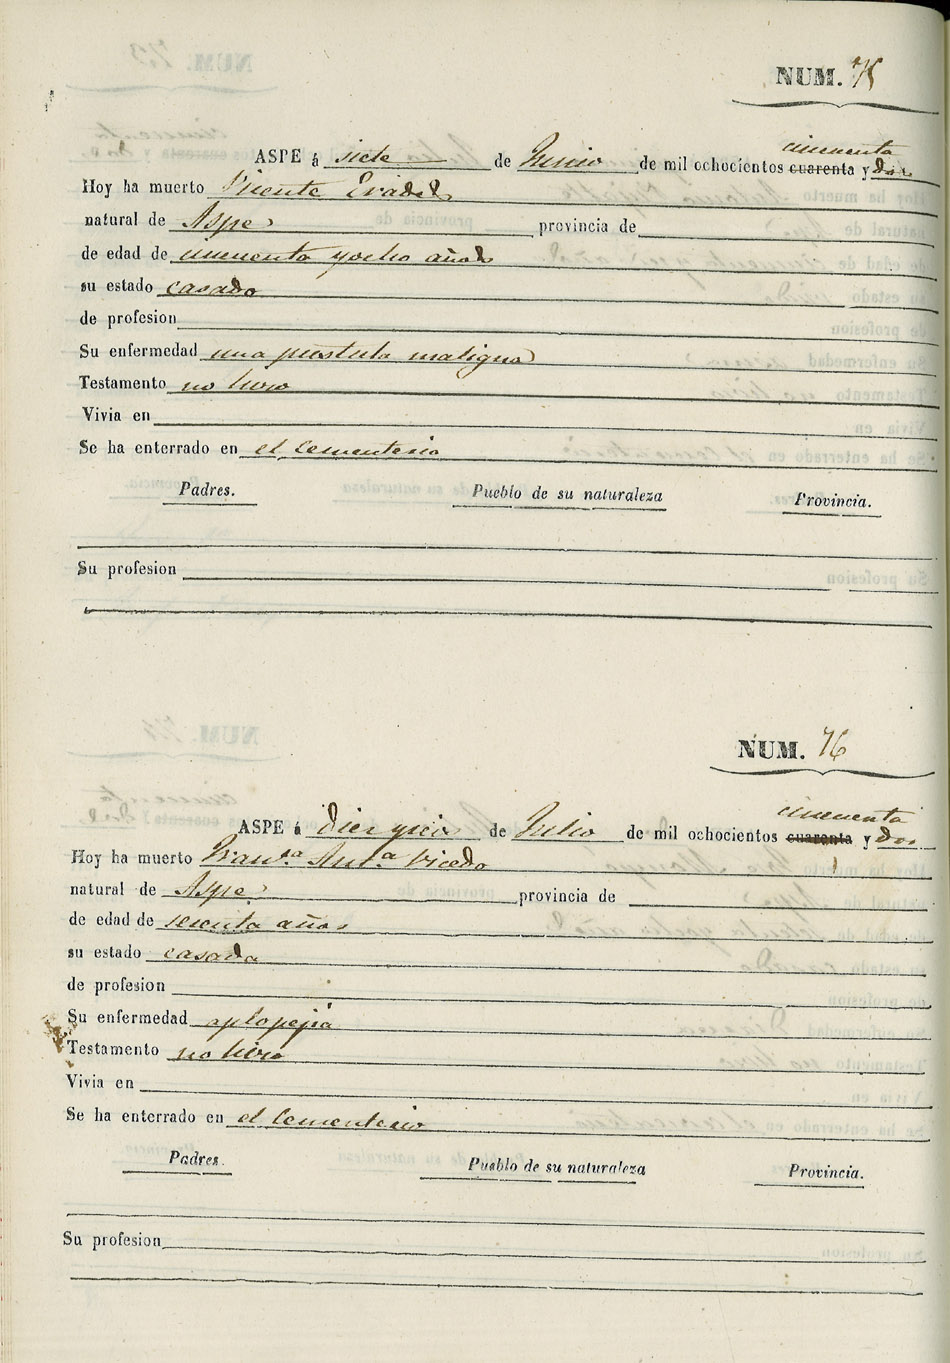 NUM. 75
cincuenta
ASPE á siete de Junio de mil ochocientos cuarenta y dos
Hoy ha muerto Vicente
natural de Aspe provincia de
de edad de cincuenta y ocho años
su estado casado
de profesion
Su enfermedad una pustula maligna
Testamento no hizo
Vivia en
Se ha enterrado en el Cementerio
Padres. Pueblo de su naturaleza Provincia.
Su profesion
NUM. 76
cincuenta
ASPE á Diez y seis de Julio de mil ochocientos cuarenta y dos
Hoy ha muerto Fran.ca Ant.a Vicedo
natural de Aspe provincia de
de edad de sesenta años
su estado casada
de profesion
Su enfermedad aplopejia
Testamento no hizo
Vivia en
Se ha enterrado en el Cementerio
Padres. Pueblo de su naturaleza Provincia.
Su profesion